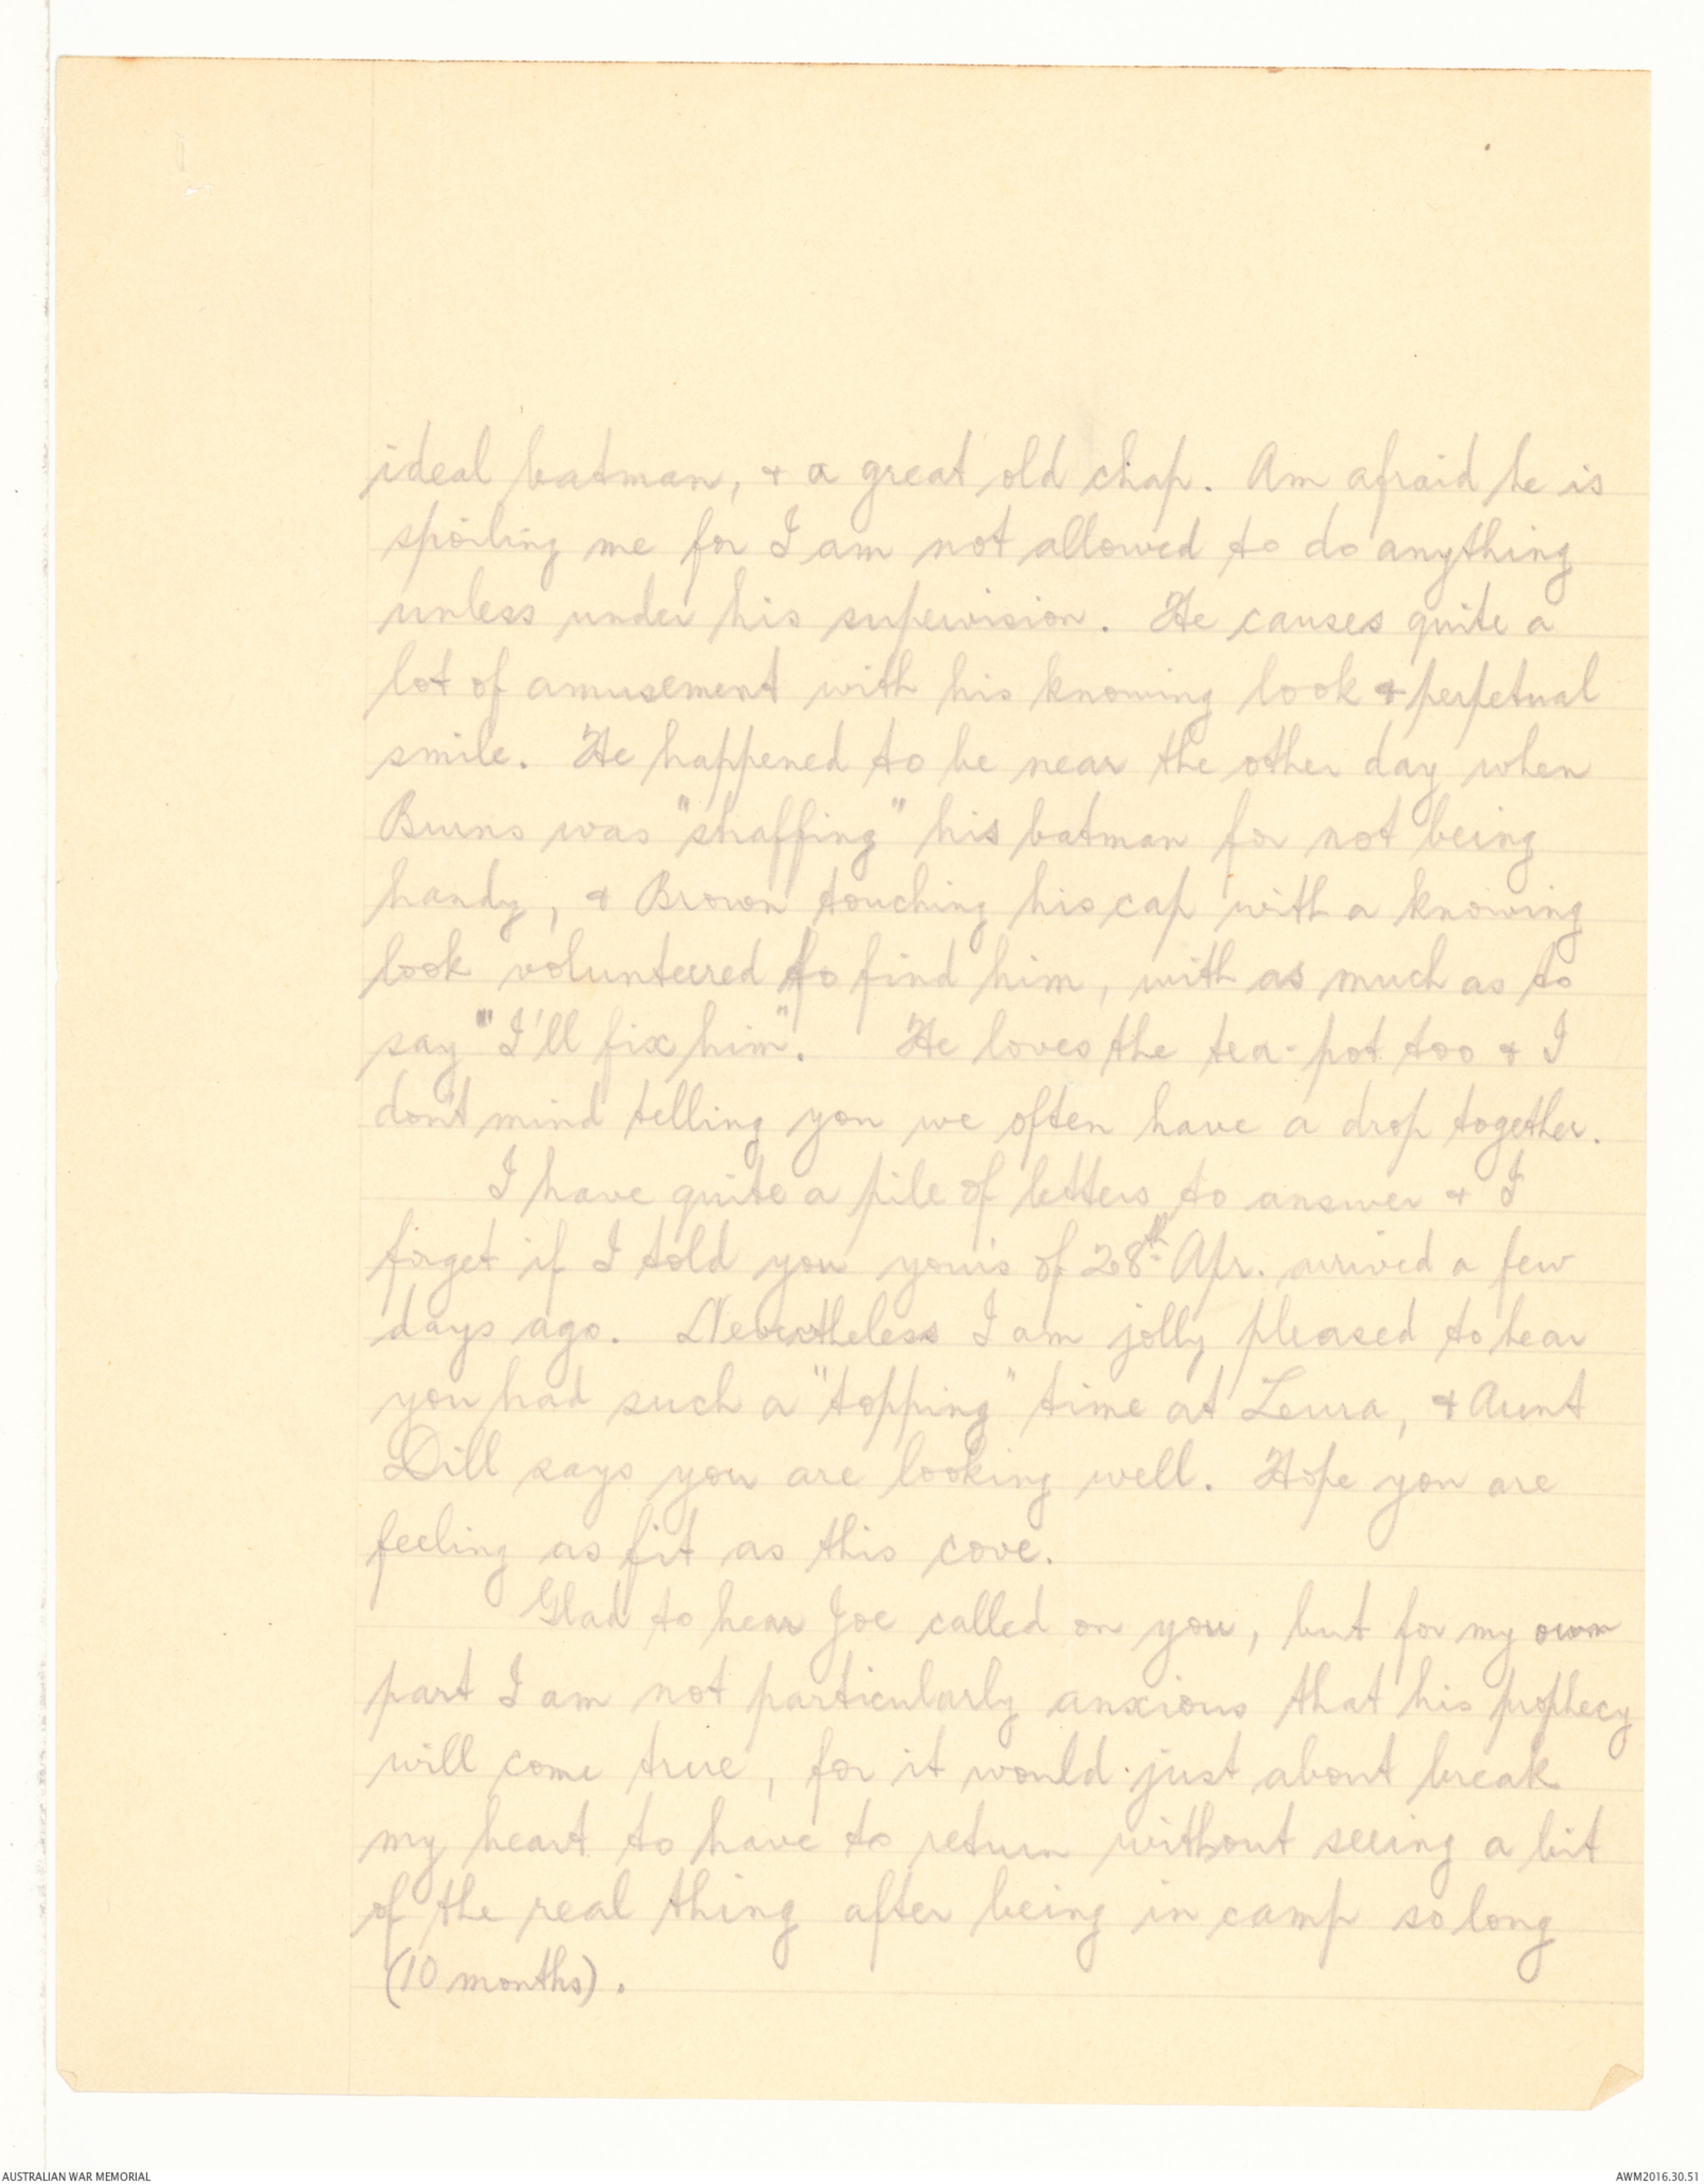 ideal batman, & a great old chap. Am afraid he is
spoiling me for I am not allowed to do anything
unless under his supervision. He causes quite a
lot of amusement with his knowing look & perpetual
smile. He happened to be near the other day when
Burns was "shaffing" his batman for not being
handy, & Brown touching his cap with a knowing
look volunteered to find him, with as much as to
say "I'll fix him". He loves the tea-pot too & I
don't mind telling you we often have a drop together.
I have quite a pile of letters to answer & I
forget if I told you yours of 28th Apr. arrived a few
days ago. Nevertheless I am jolly pleased to hear
you had such a "topping" time at Leura, & Aunt
Dill says you are looking well. Hope you are
feeling as fit as this cove.
Glad to hear Joe called on you, but for my own
part I am not particularly anxious that his prophecy
will come true, for it would just about break
my heart to have to return without seeing a bit
of the real thing after being in camp so long
(10 months).
AUSTRALIAN WAR MEMORIAL
AWM2016.30.51